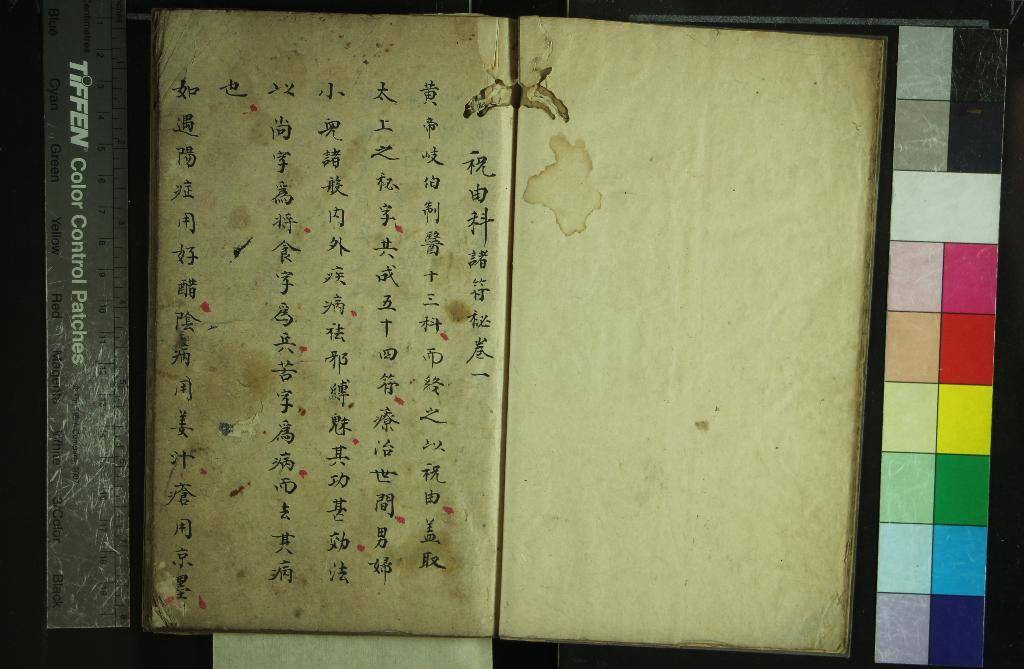 祝由科諸符秘卷一
黄帝岐伯制醫十三科而終之以祝由盖取
太上之秘字共成五十四符療治世間男婦
小兒諸般内外疾病祛邪縛魅其功甚効法
以尚字爲將食字爲兵苦字爲病而去其病
也
如遇陽症用好醋陰病用姜汁瘡用京墨
TIFFEN Color Control Patches
Blue
Cyan
Green
Yellow
Red
Magenta
White
3/Color
Black
Centimetres